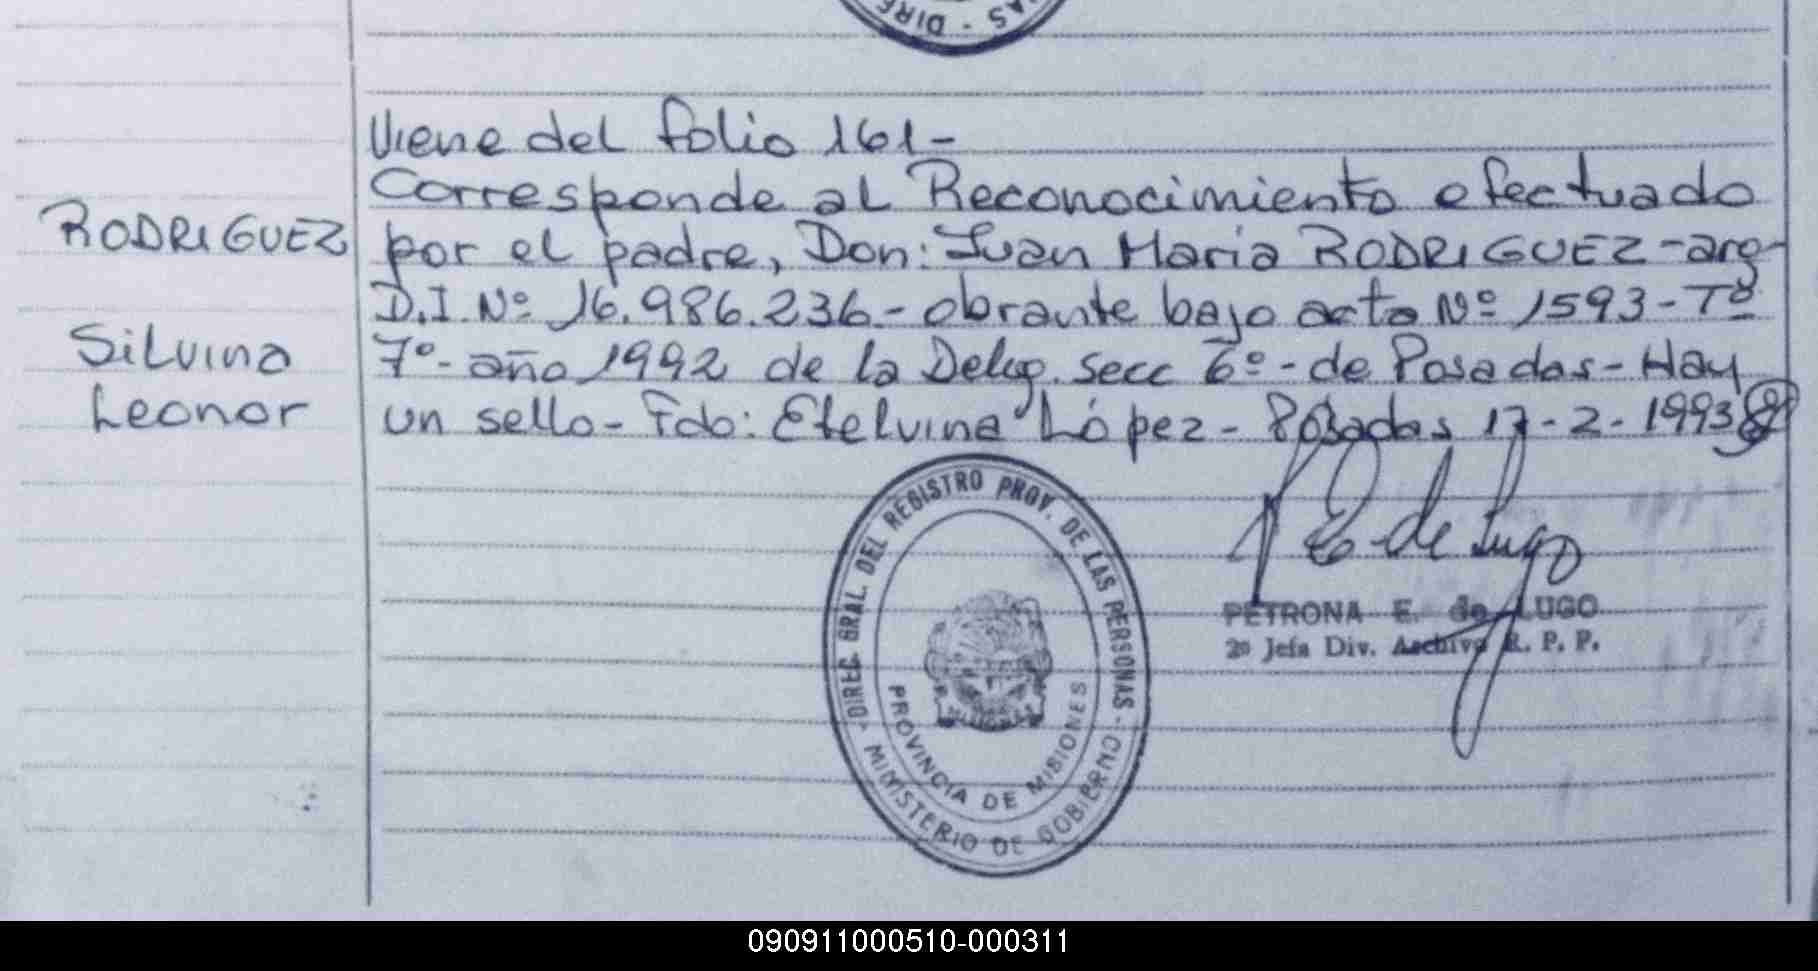 AS - DIRE
Viene del folio 161-
Corresponde al Reconocimiento efectuado
RODRIGUEZ
por el padre, Don: Juan Maria RODRIGUEZ - arg-
D.I. Nº 16.986.236.- obrante bajo acta Nº 1593 - Tº
Silvina
7º- año 1992 de la Deleg. secc 6º - de Posadas - Hay
Leonor
un sello - Fdo: Etelvina López - Posadas 17-2-1993
- DIREC. GRAL. DEL REGISTRO PROV. DE LAS PERSONAS -
MINISTERIO DE GOBIERNO
PROVINCIA DE MISIONES
P E. de Lugo
PETRONA E. de LUGO
2º Jefa Div. Archivo R. P. P.
090911000510-000311